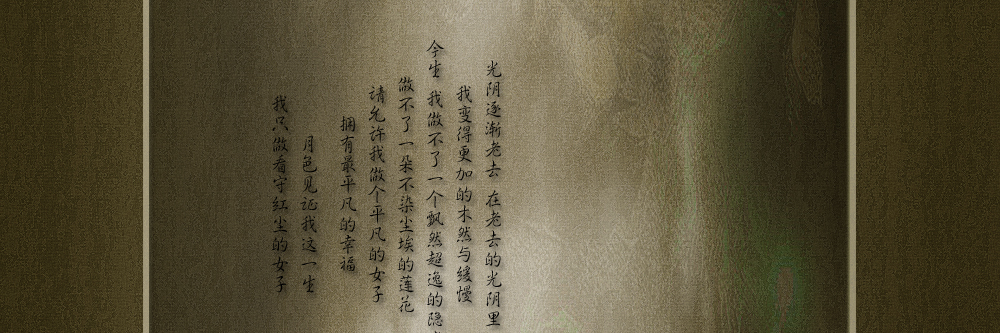 光阴逐渐老去 在老去的光阴里
我变得更加的木然与缓慢
今生 我做不了一个飘然超逸的隐
做不了一朵不染尘埃的莲花
请允许我做个平凡的女子
拥有最平凡的幸福
月色见证我这一生
我只做看守红尘的女子